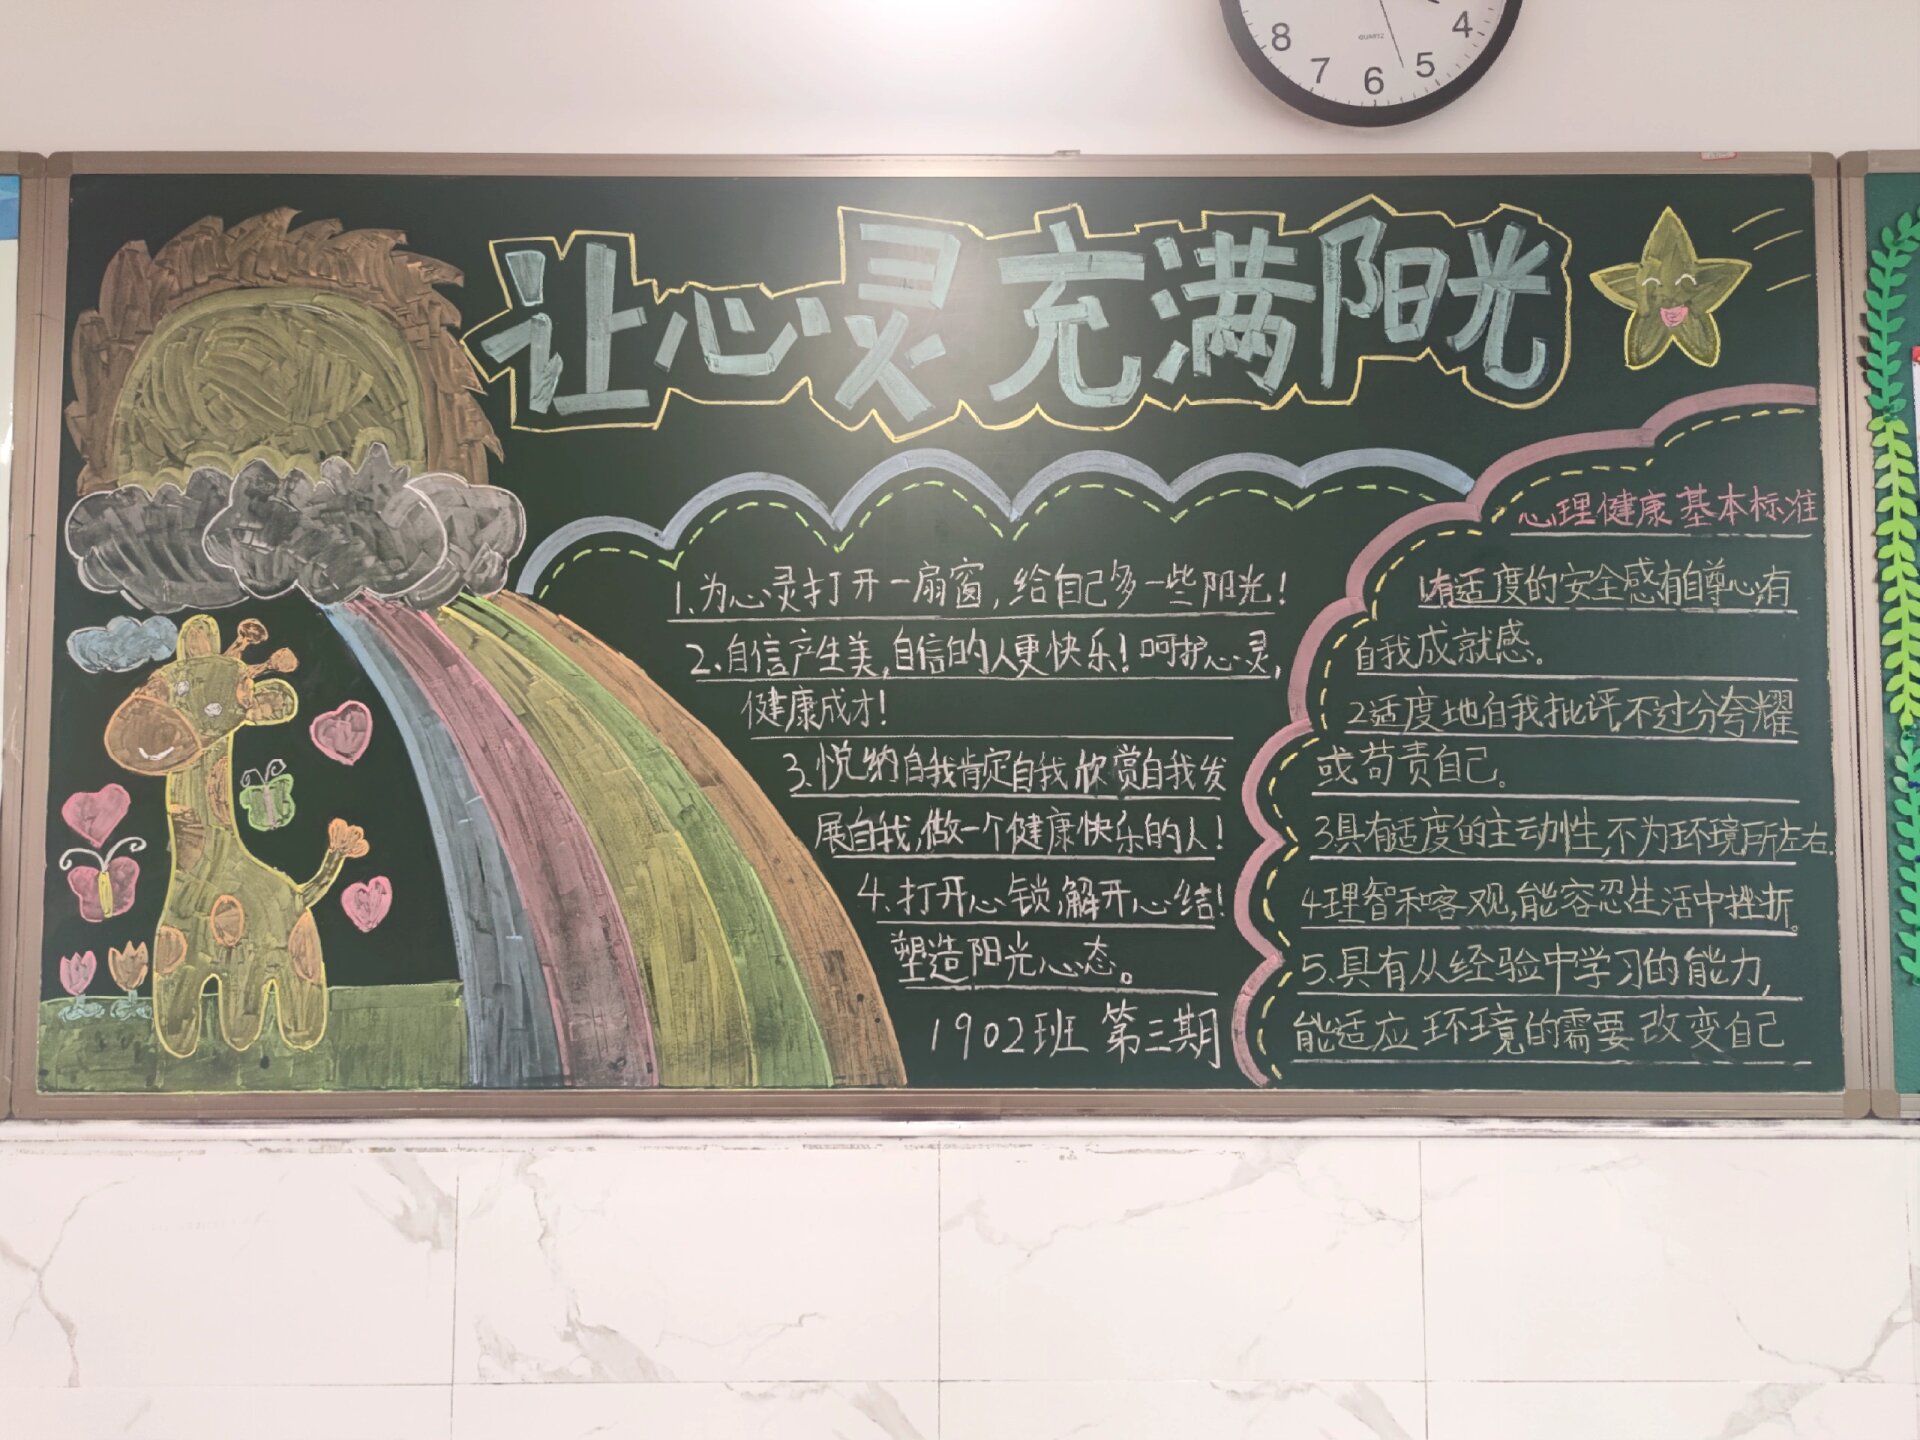 8
7
6
5
4
QUARTZ
让心灵充满阳光
1.为心灵打开一扇窗,给自己多一些阳光!
2.自信产生美,自信的人更快乐!呵护心灵,
健康成才!
3.悦纳自我肯定自我欣赏自我发
展自我,做一个健康快乐的人!
4.打开心锁,解开心结!
塑造阳光心态。
1902班 第三期
心理健康基本标准
1.有适度的安全感有自尊心,有
自我成就感。
2适度地自我批评不过分夸耀
或苟责自己。
3具有适度的主动性,不为环境所左右.
4理智和客观,能容忍生活中挫折。
5.具有从经验中学习的能力,
能适应环境的需要改变自己